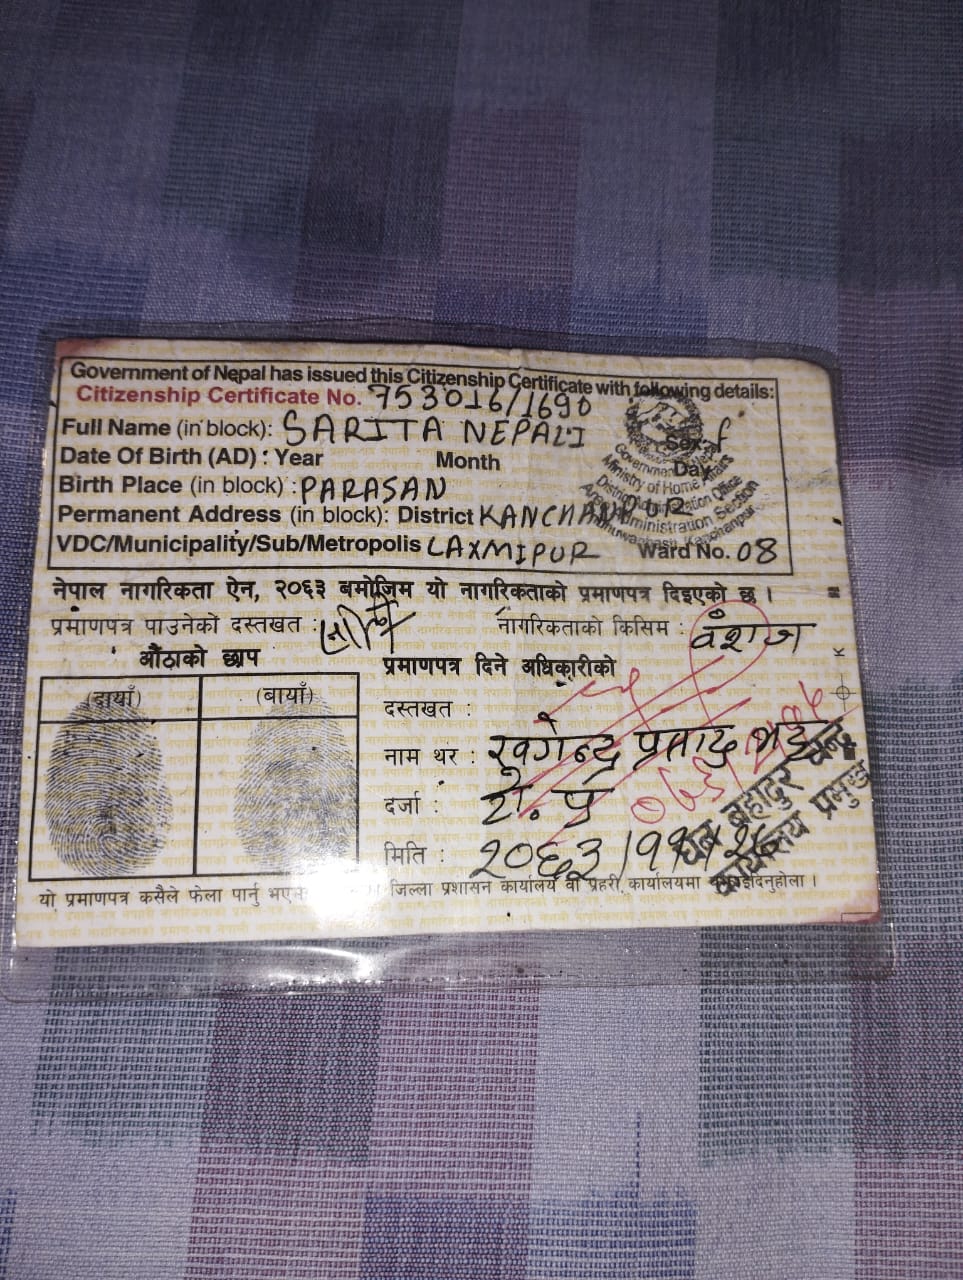 Government of Nepal has issued this Citizenship Certificate with following details:
Citizenship Certificate No. 753016/1690
Full Name (in block): SARITA NEPALI Sex: f
Date Of Birth (AD) : Year Month Day
Birth Place (in block) : PARASAN
Permanent Address (in block): District KANCHANPUR
VDC/Municipality/Sub/Metropolis LAXMIPUR Ward No. 08
Government of Nepal
Ministry of Home Affairs
District Administration Office
Administration Section
Kanchanpur
नेपाल नागरिकता ऐन, २०६३ बमोजिम यो नागरिकताको प्रमाणपत्र दिइएको छ ।
प्रमाणपत्र पाउनेको दस्तखत :
नागरिकताको किसिम : वंशज
औंठाको छाप
(दायाँ) (बायाँ)
प्रमाणपत्र दिने अधिकारीको
दस्तखत :
नाम थर : खगेन्द्र प्रसाद
दर्जा :
मिति : २०६३/११/२८
बहादुर चन्द
कार्यालय प्रमुख
यो प्रमाणपत्र कसैले फेला पार्नु जिल्ला प्रशासन कार्यालय वा प्रहरी कार्यालयमा